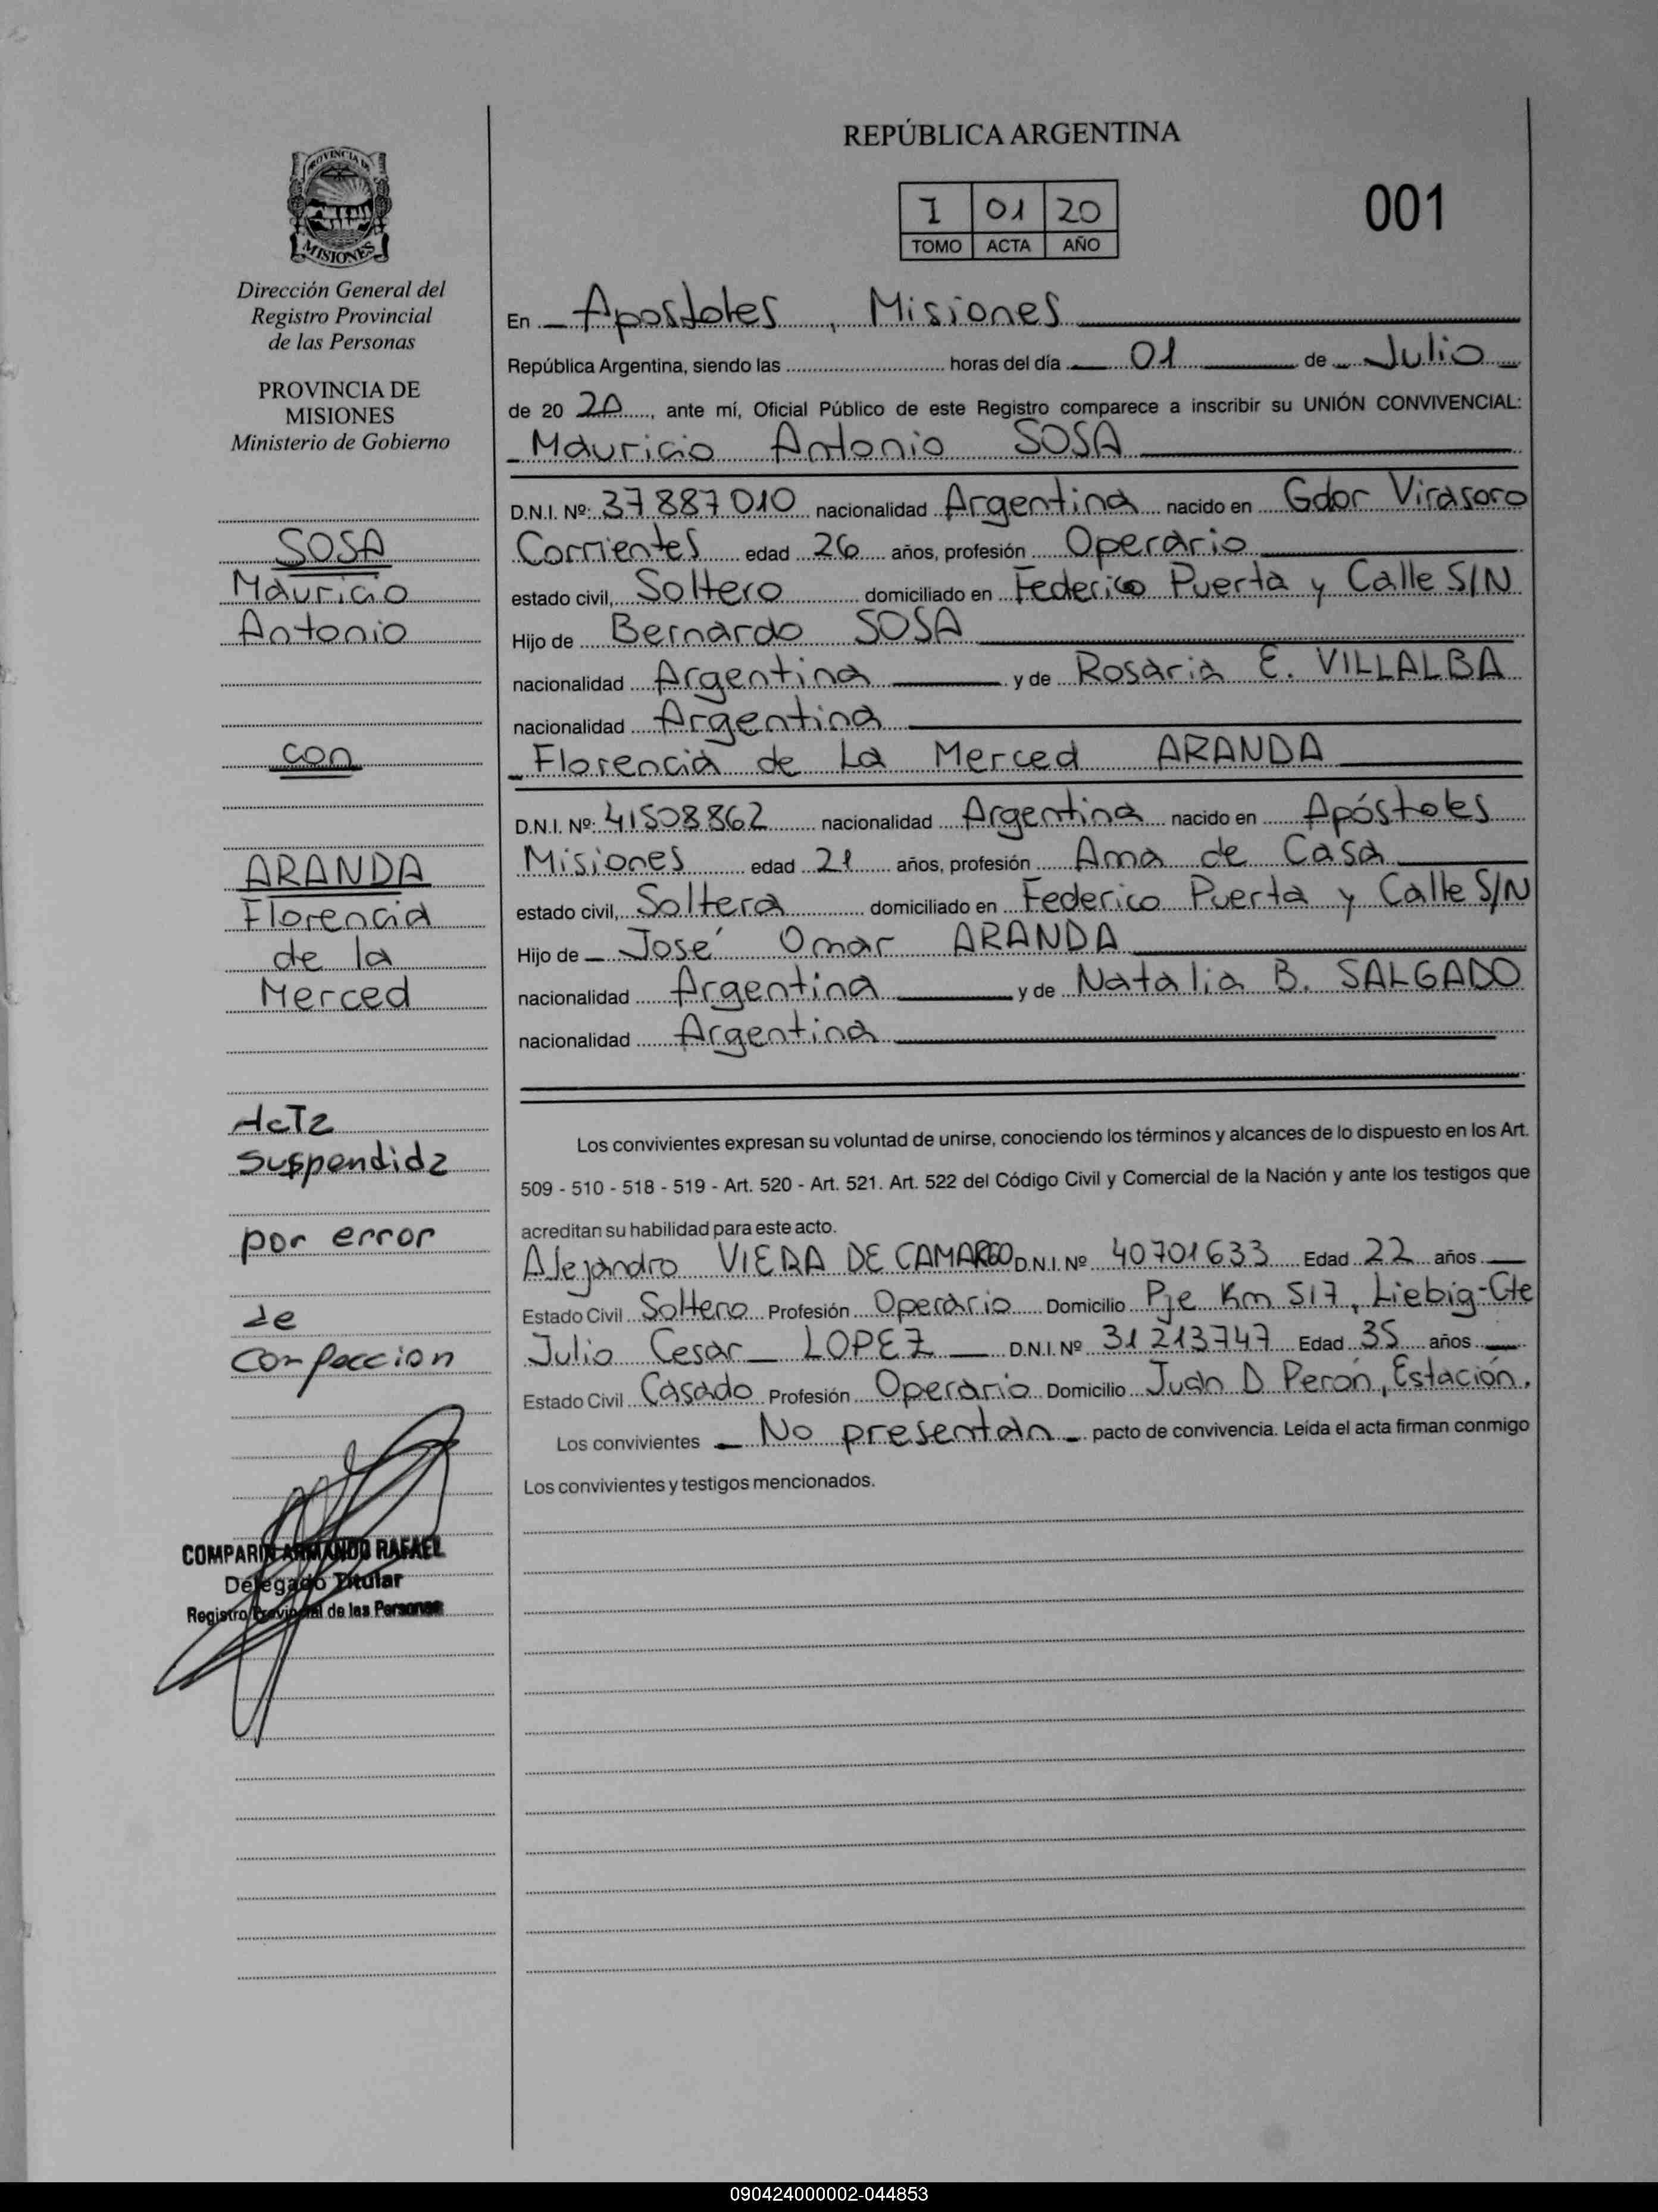 REPÚBLICA ARGENTINA
PROVINCIA DE
MISIONES
I 01 20
TOMO ACTA AÑO
001
Dirección General del
Registro Provincial
de las Personas
PROVINCIA DE
MISIONES
Ministerio de Gobierno
SOSA
Mauricio
Antonio
con
ARANDA
Florencia
de la
Merced
Acta
suspendida
por error
de
confeccion
COMPARIN ARMANDO RAFAEL
Delegado Titular
Registro Provincial de las Personas
En Apostoles, Misiones
República Argentina, siendo las ........ horas del día 01 de Julio
de 20 20, ante mí, Oficial Público de este Registro comparece a inscribir su UNIÓN CONVIVENCIAL:
Mauricio Antonio SOSA
D.N.I. Nº: 37887010 nacionalidad Argentina nacido en Gdor Virasoro
Corrientes edad 26 años, profesión Operario
estado civil, Soltero domiciliado en Federico Puerta y Calle S/N
Hijo de Bernardo SOSA
nacionalidad Argentina y de Rosaria E. VILLALBA
nacionalidad Argentina
Florencia de La Merced ARANDA
D.N.I. Nº: 41508862 nacionalidad Argentina nacido en Apóstoles
Misiones edad 21 años, profesión Ama de Casa
estado civil, Soltera domiciliado en Federico Puerta y Calle S/N
Hijo de José Omar ARANDA
nacionalidad Argentina y de Natalia B. SALGADO
nacionalidad Argentina
Los convivientes expresan su voluntad de unirse, conociendo los términos y alcances de lo dispuesto en los Art.
509 - 510 - 518 - 519 - Art. 520 - Art. 521. Art. 522 del Código Civil y Comercial de la Nación y ante los testigos que
acreditan su habilidad para este acto.
Alejandro VIERA DE CAMARGO D.N.I. Nº 40701633 Edad 22 años
Estado Civil Soltero Profesión Operario Domicilio Pje Km 517, Liebig-Cte
Julio Cesar LOPEZ D.N.I. Nº 31213747 Edad 35 años
Estado Civil Casado Profesión Operario Domicilio Juan D Perón, Estación.
Los convivientes No presentan pacto de convivencia. Leída el acta firman conmigo
Los convivientes y testigos mencionados.
090424000002-044853